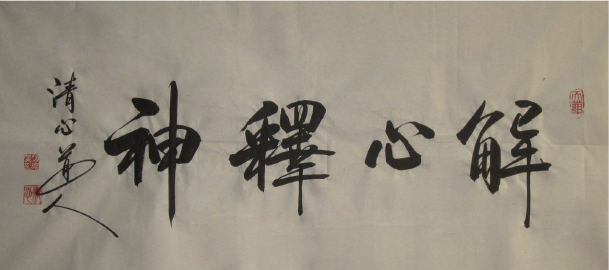 解心釋神
清心道人